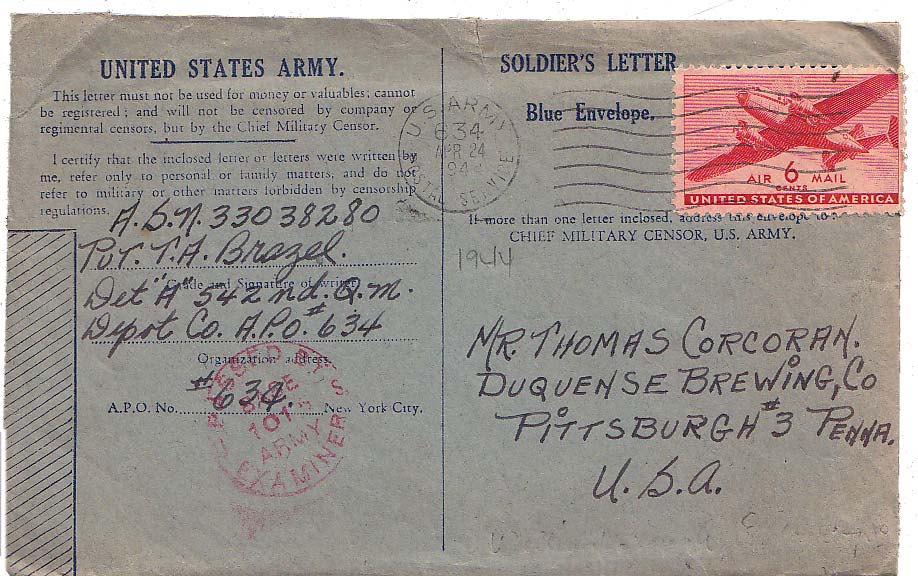 UNITED STATES ARMY.
This letter must not be used for money or valuables; cannot
be registered; and will not be censored by company or
regimental censors, but by the Chief Military Censor.
I certify that the inclosed letter or letters were written by
me, refer only to personal or family matters, and do not
refer to military or other matters forbidden by censorship
regulations.
A.S.N. 33038280
Pvt. T.A. Brazel.
Grade and Signature of writer.
Det "A" 542nd. Q.M.
Depot Co. A.P.O. #634
Organization address.
#634.
A.P.O. No. New York City.
PASSED BY
BASE
1013
ARMY
EXAMINER
SOLDIER'S LETTER
Blue Envelope.
U.S. ARMY
634
APR 24
POSTAL SERVICE
AIR 6 MAIL
CENTS
UNITED STATES OF AMERICA
If more than one letter inclosed, address this envelope to
CHIEF MILITARY CENSOR, U.S. ARMY.
1944
MR. THOMAS CORCORAN.
DUQUENSE BREWING, CO
PITTSBURGH #3 PENNA.
U.S.A.